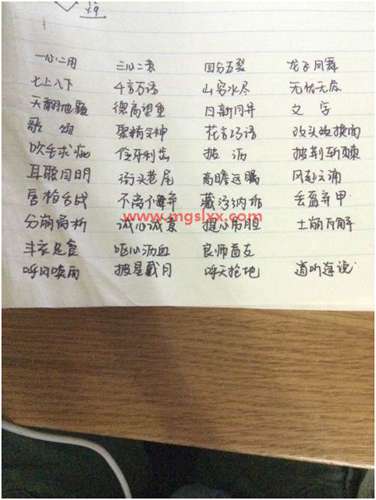 一心二用 三心二意 四分五裂 龙飞凤舞
七上八下 千言万语 山穷水尽 无忧无虑
天翻地覆 德高望重 日新月异 文字
歌颂 聚精会神 花言巧语 改头换面
吹毛求疵 伶牙利齿 披沥 披荆斩棘
耳聪目明 街头巷尾 高瞻远瞩 风起云涌
唇枪舌战 不屑 藏污纳垢 丢盔弃甲
www.mgslxx.com
分崩离析 诚心诚意 提心吊胆 土崩瓦解
丰衣足食 呕心沥血 良师益友
呼风唤雨 披星戴月 呼天抢地 道听途说